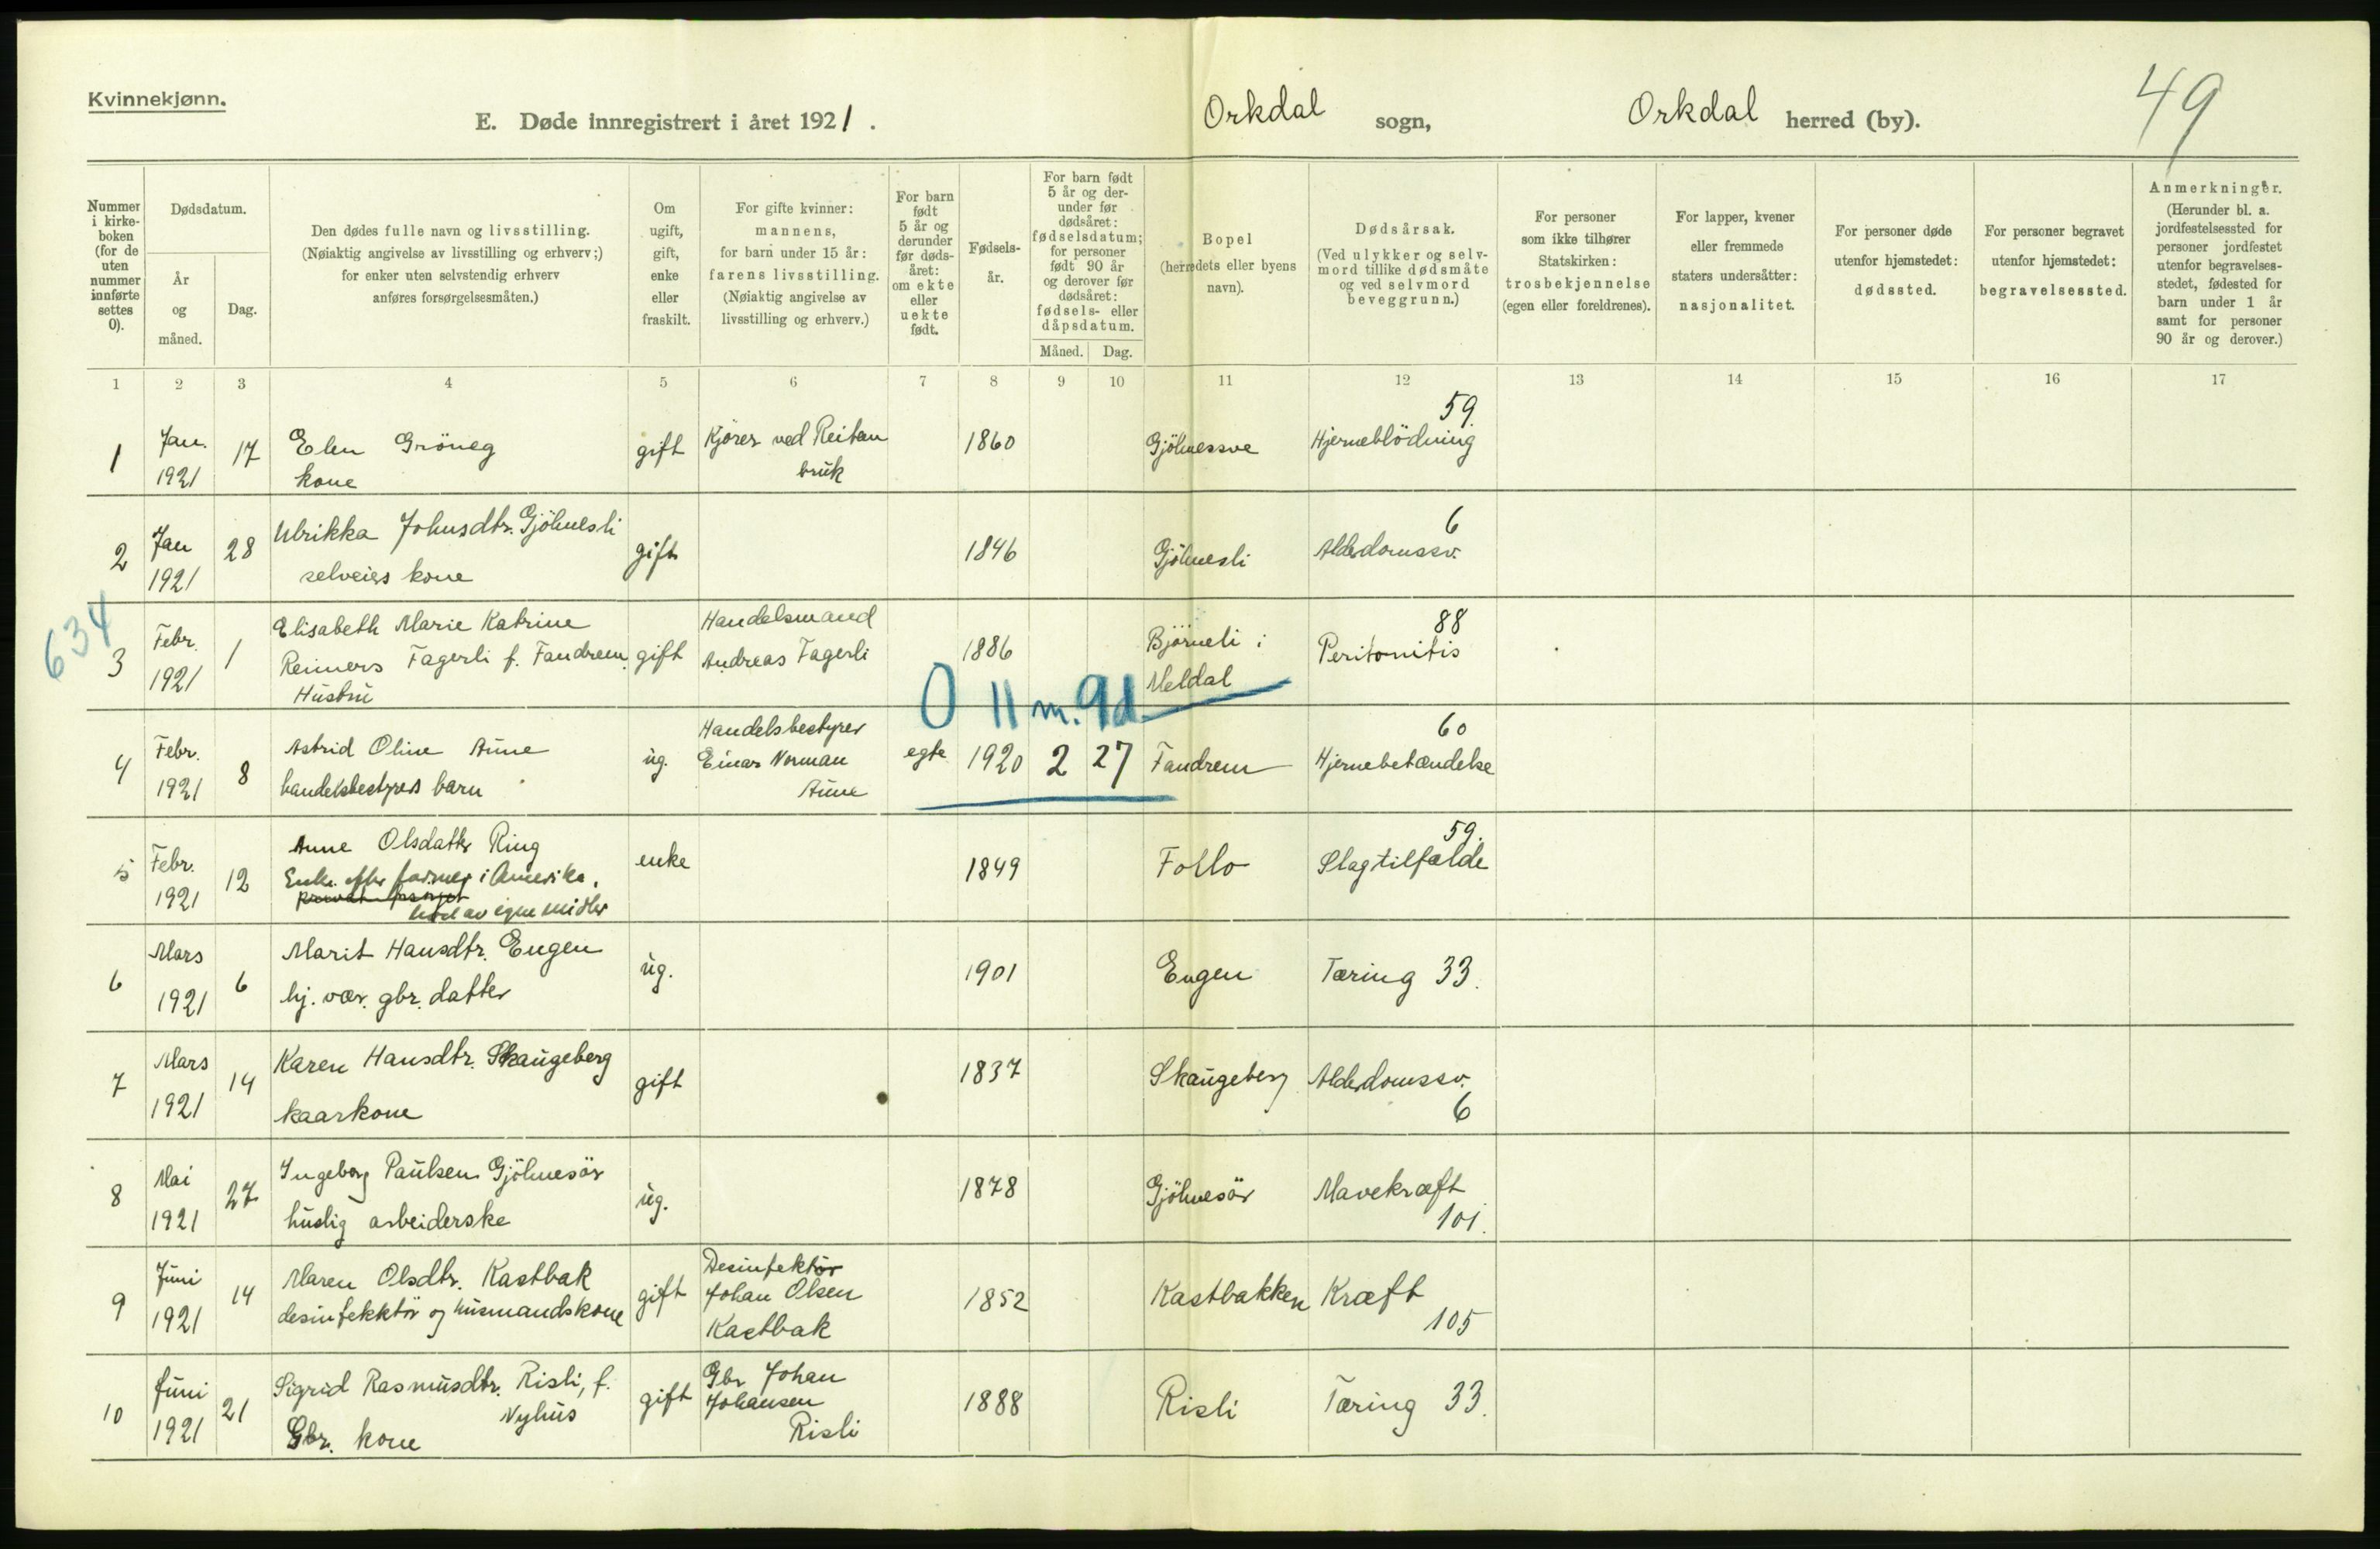 Kvinnekjønn.
E. Døde innregistrert i året 1921.
Orkdal sogn,
Orkdal herred (by).
49
Nummer i kirke-boken (for de uten nummer innførte settes 0).
Dødsdatum.
År og måned.
Dag.
Den dødes fulle navn og livsstilling.
(Nøiaktig angivelse av livsstilling og erhverv;)
for enker uten selvstendig erhverv
anføres forsørgelsesmåten.)
Om ugift, gift, enke eller fraskilt.
For gifte kvinner:
mannens,
for barn under 15 år:
farens livsstilling.
(Nøiaktig angivelse av
livsstilling og erhverv.)
For barn født 5 år og derunder før døds-året: om ekte eller uekte født.
Fødsels-år.
For barn født
5 år og der-
under før
dødsåret:
fødselsdatum;
for personer
født 90 år
og derover før
dødsåret:
fødsels- eller
dåpsdatum.
Måned.
Dag.
Bopel
(herredets eller byens
navn).
Dødsårsak.
(Ved ulykker og selv-
mord tillike dødsmåte
og ved selvmord
beveggrunn.)
For personer
som ikke tilhører
Statskirken:
trosbekjennelse
(egen eller foreldrenes).
For lapper, kvener
eller fremmede
staters undersåtter:
nasjonalitet.
For personer døde
utenfor hjemstedet:
dødssted.
For personer begravet
utenfor hjemstedet:
begravelsessted.
Anmerkninger.
(Herunder bl. a.
jordfestelsessted for
personer jordfestet
utenfor begravelses-
stedet, fødested for
barn under 1 år
samt for personer
90 år og derover.)
1 2 3 4 5 6 7 8 9 10 11 12 13 14 15 16 17
1 Jan. 1921 17 Elen Gröneg
kone
gift Kjörer ved Reitan
bruk
1860 Gjölmessve Hjerneblödning 59.
2 Jan 1921 28 Ulrikka Johnsdtr. Gjölmesli
selveiers kone
gift 1846 Gjölmesli Alderdomssv. 6
634
3 Febr. 1921 1 Elisabeth Marie Katrine
Reimers Fagerli f. Fandrem.
Hustru
gift Handelsmand
Andreas Fagerli
1886 Björneli i
Meldal
Peritonitis 88
0 11 m. 9 d
4 Febr. 1921 8 Astrid Oline Aune
handelsbestyrers barn
ug. Handelsbestyrer
Einar Norman
Aune
egte 1920 2 27 Fandrem Hjernebetændelse 60
5 Febr. 1921 12 Anne Olsdatter Ring
Enke efter farmer i Amerika.
levet av egne midler
enke 1849 Follo Slagtilfælde 59.
6 Mars 1921 6 Marit Hansdtr. Engen
hj. vær. gbr. datter
ug. 1901 Engen Tæring 33.
7 Mars 1921 14 Karen Hansdtr. Skaugeberg
kaarkone
gift 1837 Skaugeberg Alderdomssv. 6
8 Mai 1921 27 Ingeborg Paulsen Gjölmesör
huslig arbeiderske
ug. 1878 Gjölmesör Mavekræft 101.
9 Juni 1921 14 Maren Olsdtr. Kastbak
desinfekktör og husmandskone
gift Desinfektör
Johan Olsen
Kastbak
1852 Kastbakken Kræft 105
10 Juni 1921 21 Sigrid Rasmusdtr. Risli, f.
Nyhus
Gbr. kone
gift Gbr Johan
Johansen
Risli
1888 Risli Tæring 33.